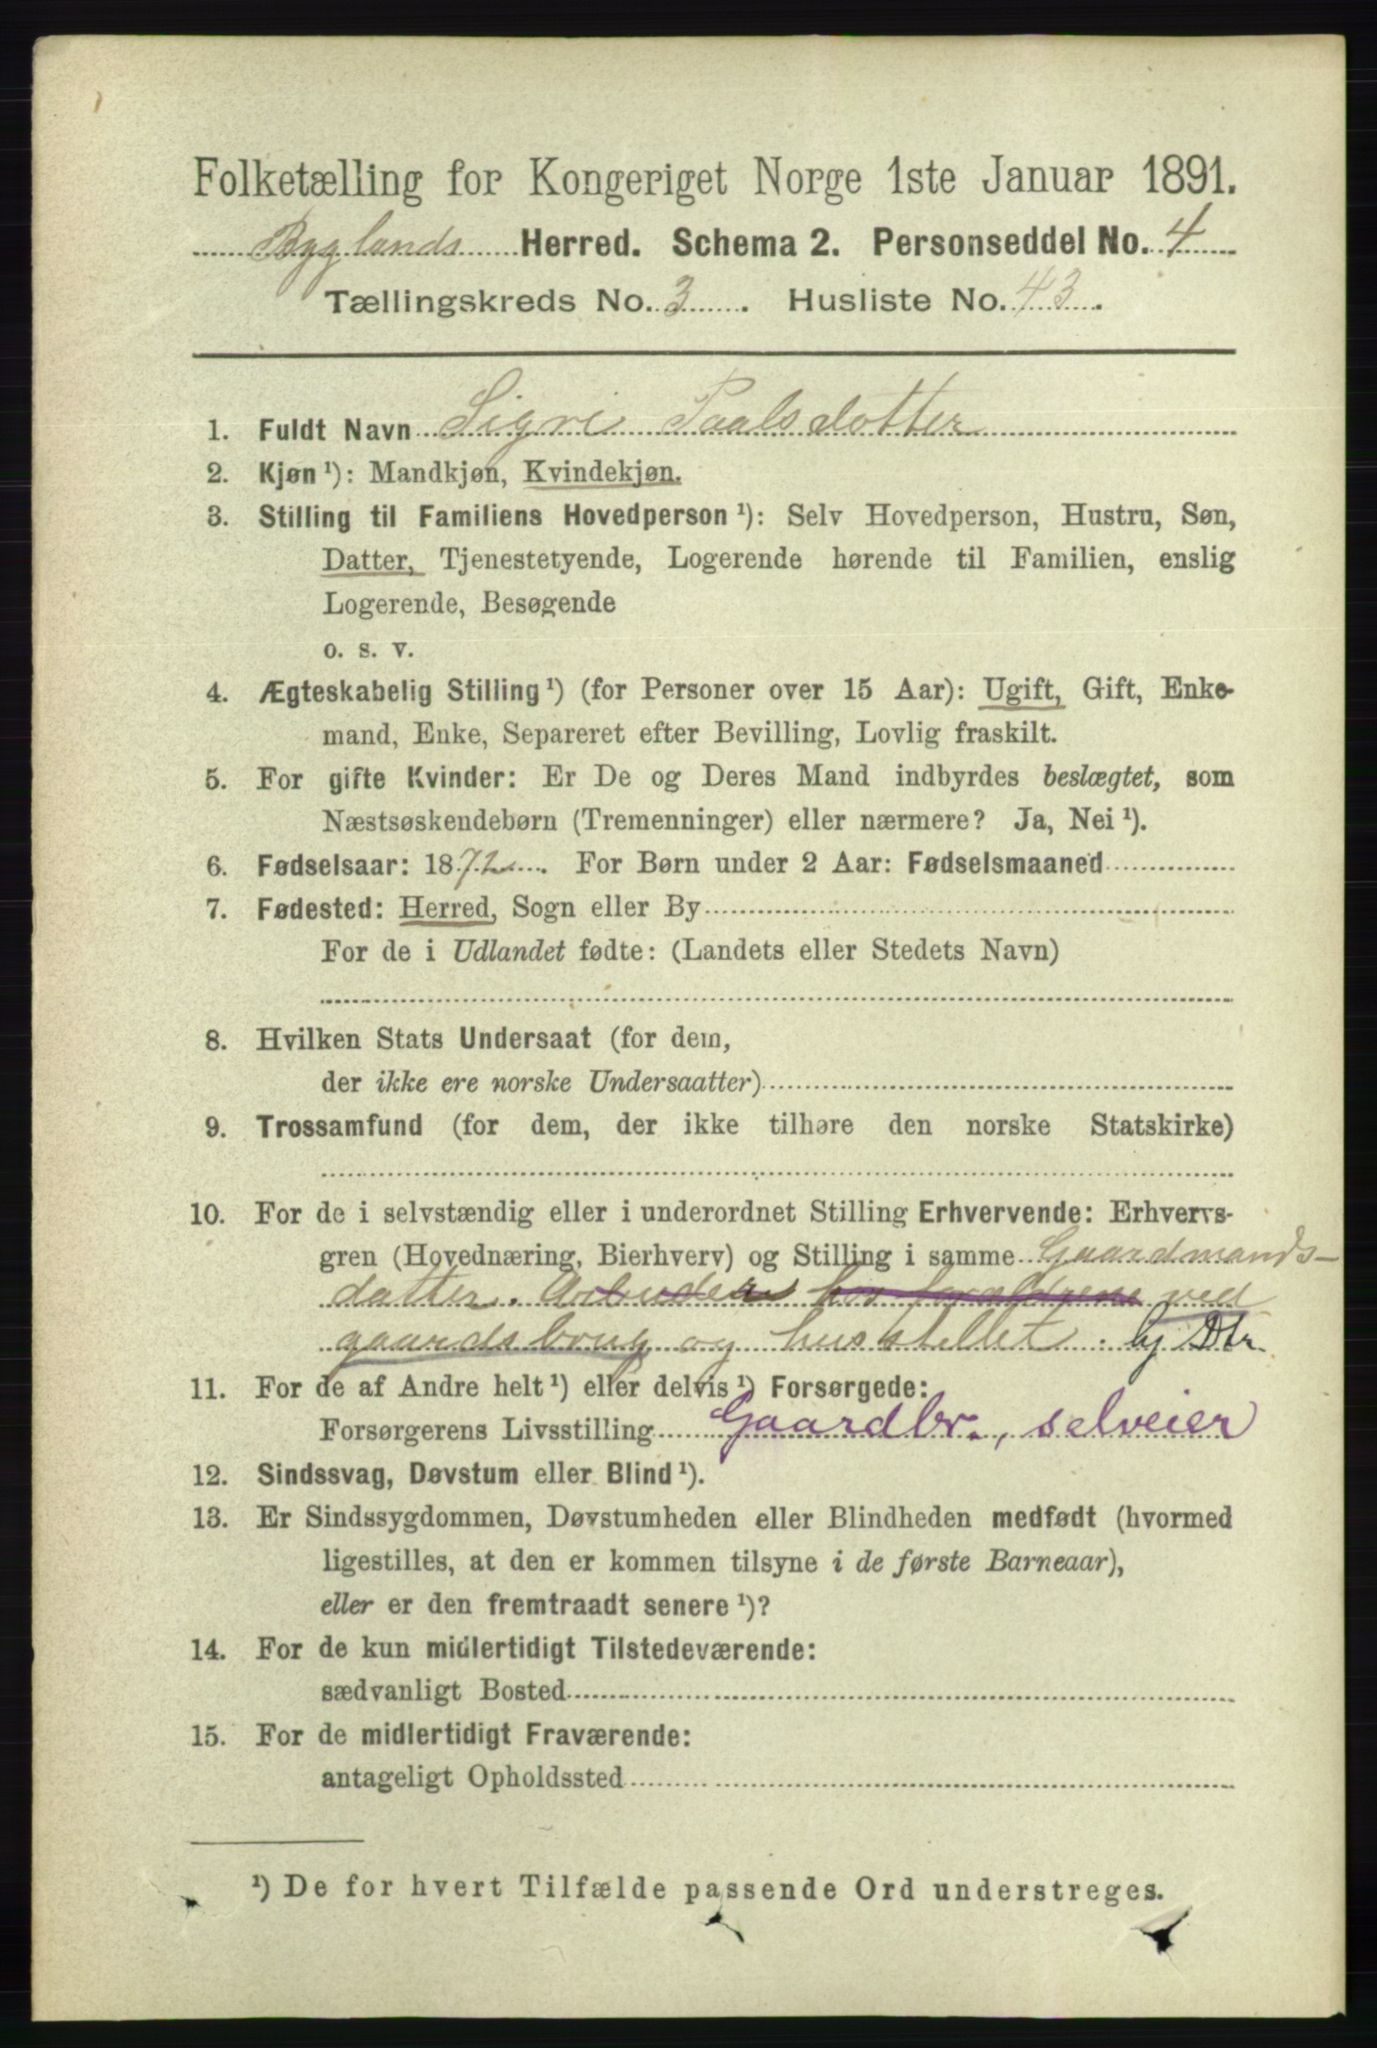 Folketælling for Kongeriget Norge 1ste Januar 1891.
Byglands Herred. Schema 2. Personseddel No. 4
Tællingskreds No. 3. Husliste No. 43.
1. Fuldt Navn Sigri Paalsdotter
2. Kjøn ¹): Mandkjøn, Kvindekjøn.
3. Stilling til Familiens Hovedperson ¹): Selv Hovedperson, Hustru, Søn,
Datter, Tjenestetyende, Logerende hørende til Familien, enslig
Logerende, Besøgende
o. s. v.
4. Ægteskabelig Stilling ¹) (for Personer over 15 Aar): Ugift, Gift, Enke-
mand, Enke, Separeret efter Bevilling, Lovlig fraskilt.
5. For gifte Kvinder: Er De og Deres Mand indbyrdes beslægtet, som
Næstsøskendebørn (Tremenninger) eller nærmere? Ja, Nei ¹).
6. Fødselsaar: 1872. For Børn under 2 Aar: Fødselsmaaned
7. Fødested: Herred, Sogn eller By
For de i Udlandet fødte: (Landets eller Stedets Navn)
8. Hvilken Stats Undersaat (for dem,
der ikke ere norske Undersaatter)
9. Trossamfund (for dem, der ikke tilhøre den norske Statskirke)
10. For de i selvstændig eller i underordnet Stilling Erhvervende: Erhvervs-
gren (Hovednæring, Bierhverv) og Stilling i samme Gaardmands-
datter. Arbuder hos foraldrene ved
gaardsbrug og husstellet. hj Dtr
11. For de af Andre helt ¹) eller delvis ¹) Forsørgede:
Forsørgerens Livsstilling Gaardbr., selveier
12. Sindssvag, Døvstum eller Blind ¹).
13. Er Sindssygdommen, Døvstumheden eller Blindheden medfødt (hvormed
ligestilles, at den er kommen tilsyne i de første Barneaar),
eller er den fremtraadt senere ¹)?
14. For de kun midlertidigt Tilstedeværende:
sædvanligt Bosted
15. For de midlertidigt Fraværende:
antageligt Opholdssted
¹) De for hvert Tilfælde passende Ord understreges.